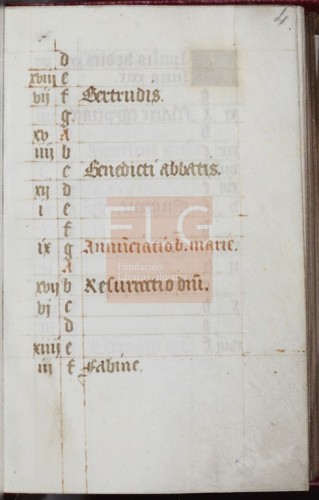 4
d
xviij e
vij f Gertrudis.
g
xv A
iiij b
c Benedicti abbatis.
xij d
i e
f
ix g Annũciatio. b. marie.
A
xvij b Resurrectio dñi.
vj c
d
xiiij e
iij f Sabine.
FLG
Fundación